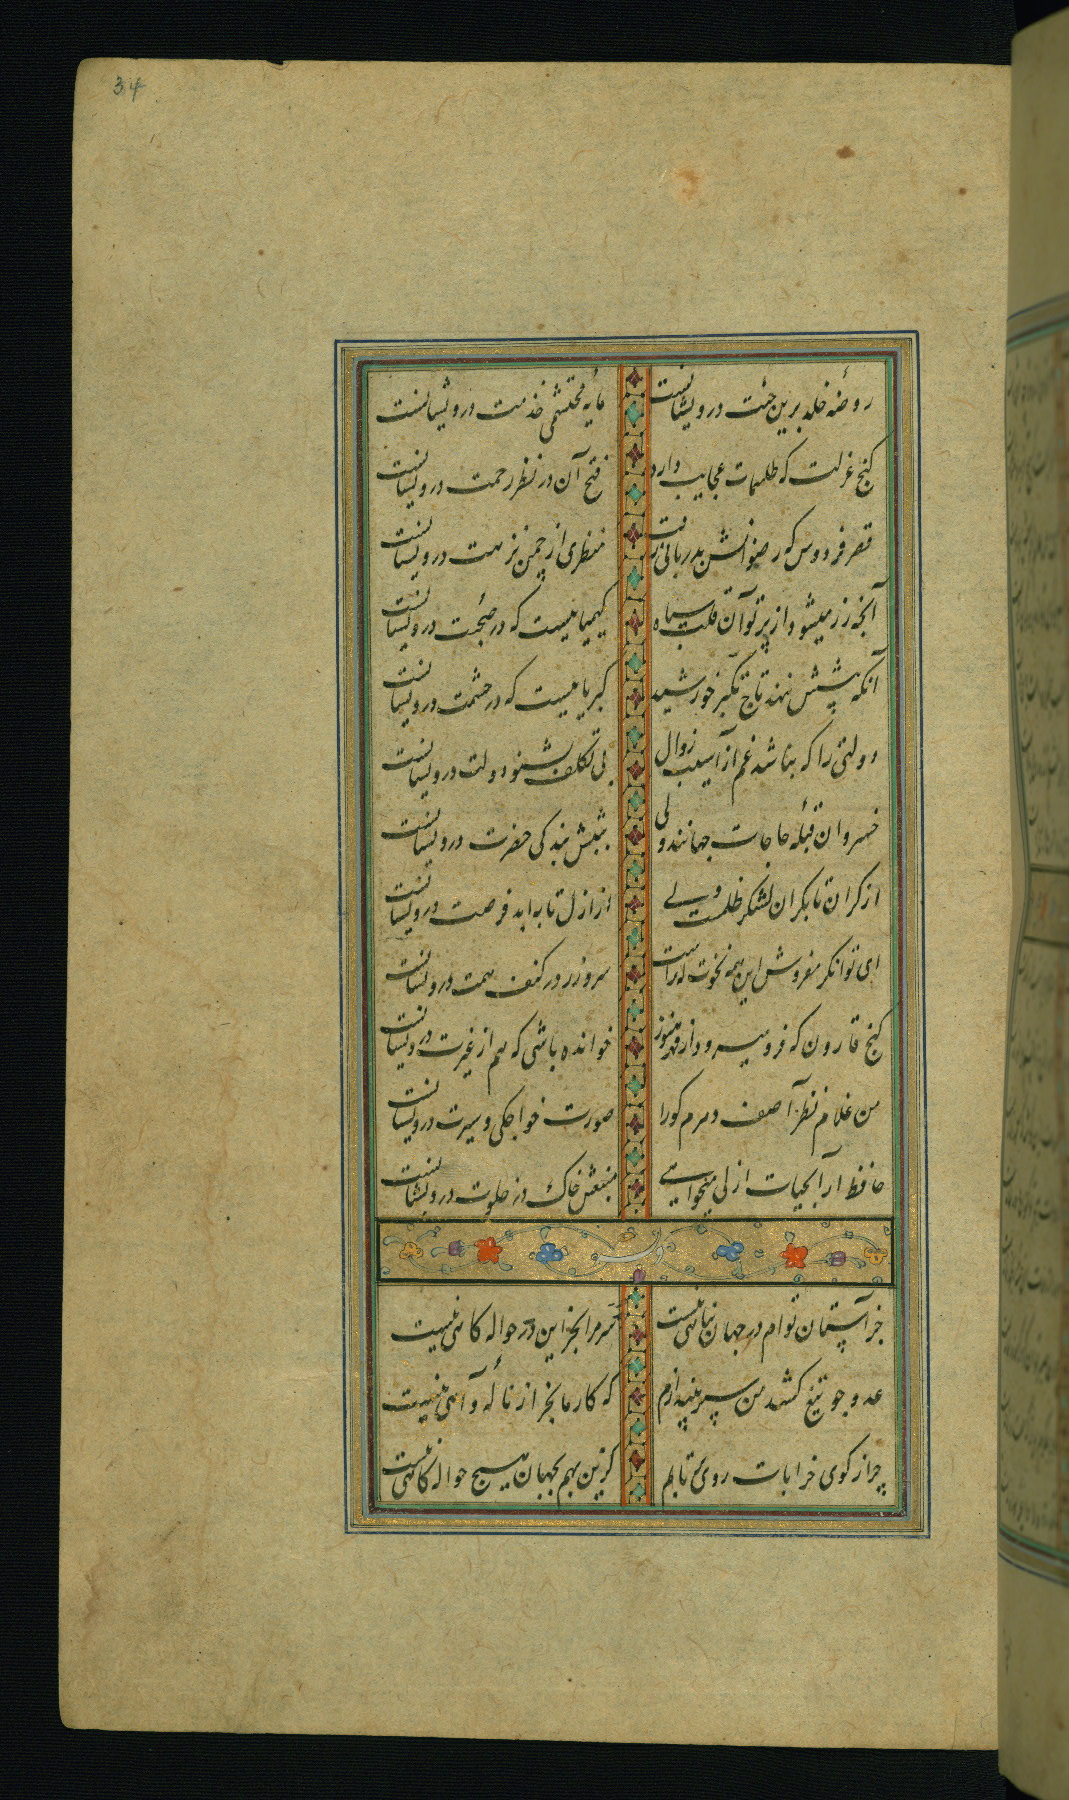 34
روضهٔ خلد برین خلوت درویشانست مایهٔ محتشمی خدمت درویشانست
کنج عزلت که طلسمات عجایب دارد فتح آن در نظر رحمت درویشانست
قصر فردوس که رضوانش بدربانی رفت منظری از چمن نزهت درویشانست
آنچه زر میشود از پرتو آن قلب سیاه کیمیاییست که در صحبت درویشانست
آنکه پیشش بنهد تاج تکبر خورشید کبریاییست که در حشمت درویشانست
دولتی را که نباشد غم از آسیب زوال بی تکلف بشنو دولت درویشانست
خسروان قبلهٔ حاجات جهانند ولی بندگی حضرت درویشانست
از کران تا بکران لشکر ظلمست ولی از ازل تا به ابد فرصت درویشانست
ای توانگر مفروش این همه نخوت که ترا سر و زر در کنف همت درویشانست
گنج قارون که فرو میرود از قهر هنوز خوانده باشی که هم از غیرت درویشانست
من غلام نظر آصف عهدم کو را صورت خواجگی و سیرت درویشانست
حافظ ار آب حیات ازلی میخواهی منبعش خاک در خلوت درویشانست
جز آستان توام در جهان پناهی نیست سر مرا بجز این در حواله کاهی نیست
عدو چو تیغ کشد من سپر بیندازم که کار ما بجز از ناله و آهی نیست
چرا ز کوی خرابات روی بر تابم کزین بهم بجهان هیچ حواله کاهی نیست